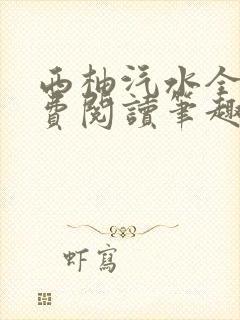 西柚汽水全
费閱讀筆趣
虾寫